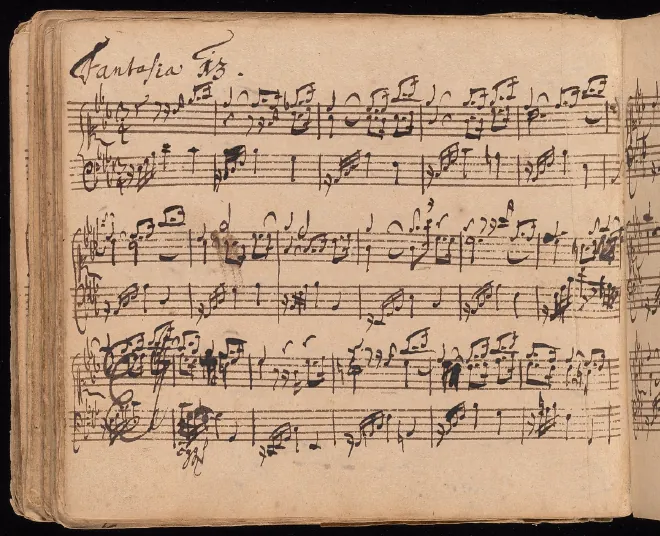 Fantasia 13.